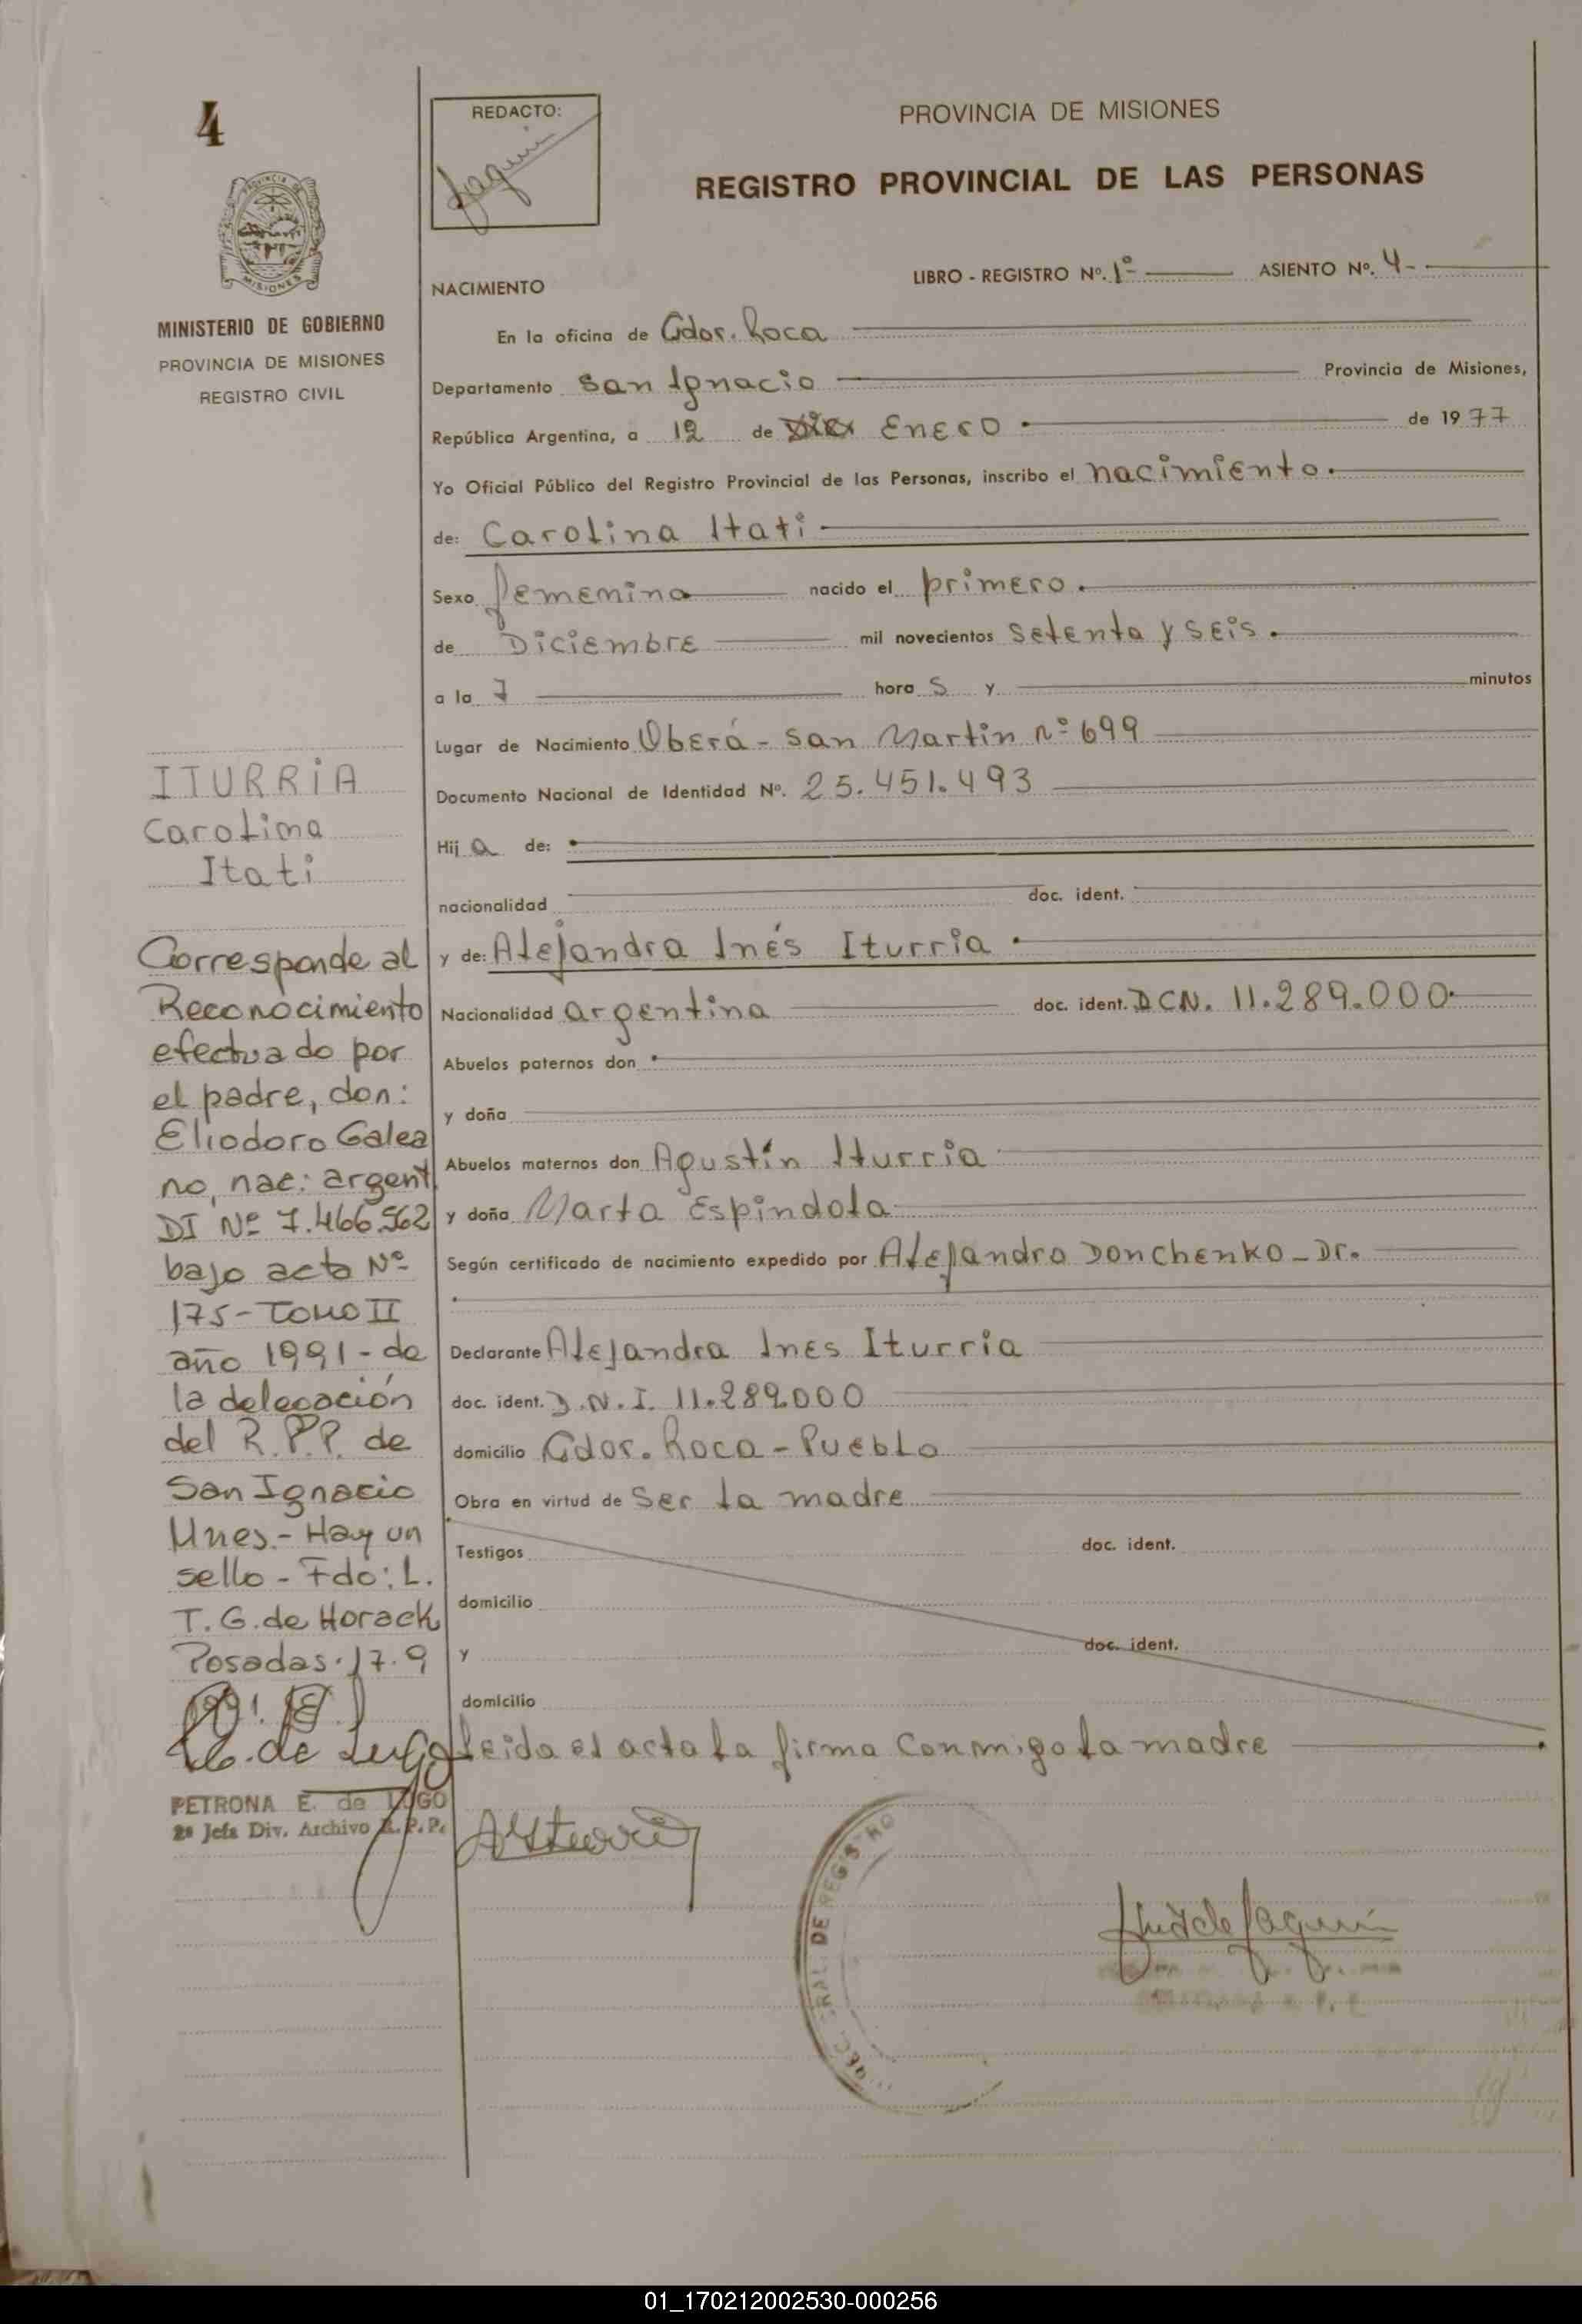 4
REDACTO:
Jaquin
PROVINCIA DE MISIONES
REGISTRO PROVINCIAL DE LAS PERSONAS
MISIONES
MINISTERIO DE GOBIERNO
PROVINCIA DE MISIONES
REGISTRO CIVIL
LIBRO - REGISTRO Nº. 1º ASIENTO Nº. 4-
NACIMIENTO
En la oficina de Gdor. Roca
Departamento San Ignacio Provincia de Misiones,
República Argentina, a 12 de Enero de 1977
Yo Oficial Público del Registro Provincial de las Personas, inscribo el nacimiento.
de: Carolina Itati
Sexo femenino nacido el primero.
de Diciembre mil novecientos setenta y seis.
a la 7 hora s y minutos
Lugar de Nacimiento Oberá - San Martin nº 699
Documento Nacional de Identidad Nº. 25.451.493
Hij a de:
nacionalidad doc. ident.
y de: Alejandra Inés Iturria
Nacionalidad argentina doc. ident. DCN. 11.289.000
Abuelos paternos don
y doña
Abuelos maternos don Agustín Iturria
y doña Marta Espindola
Según certificado de nacimiento expedido por Alejandro Donchenko - Dr.
Declarante Alejandra Ines Iturria
doc. ident. D.N.I. 11.289.000
domicilio Gdor. Roca - Pueblo
Obra en virtud de ser la madre
Testigos doc. ident.
domicilio
y doc. ident.
domicilio
leida el acta la firma conmigo la madre
ITURRIA
Carolina
Itati
Corresponde al
Reconocimiento
efectuado por
el padre, don:
Eliodoro Galea
no, nac: argent.
DI Nº 7.466.562
bajo acta Nº
175 - Tomo II
año 1991 - de
la delegación
del R.P.P. de
San Ignacio
Mnes.- Hay un
sello - Fdo: L.
T. G. de Horack
Posadas. 17. 9
1991.
de Lugo
PETRONA E. de LUGO
2ª Jefa Div. Archivo R.P.P.
AIturria
DE REGISTRO
de Jaquin
01_170212002530-000256